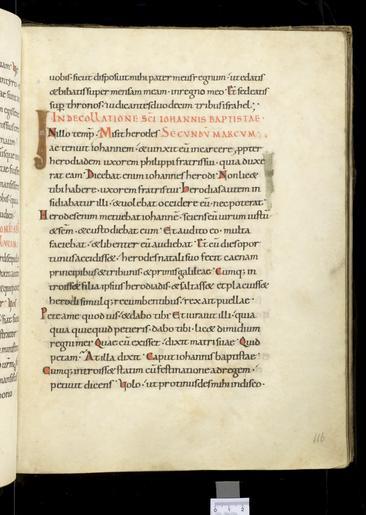 uobis. sicut disposuit mihi pater meus regnum. ut edatis
& bibatis super mensam meam. in regno meo. Et sedeatis
sup thronos. iudicantes duodecim tribus israhel;
IN DECOLLATIONE SCI IOHANNIS BAPTISTAE.
IN illo temp. Misit herodes SECUNDUM MARCUM;
ac tenuit iohannem. & uinxit eum in carcere, ppter
herodiadem uxorem philippi fratris sui. quia duxe
rat eam. Dicebat enim iohannes herodi. Non lic&
tibi habere. uxorem fratris tui. herodias autem in
sidiabatur illi. & uolebat occidere eum. nec poterat.
Herodes enim metuebat iohannē. sciens eum uirum iustū
& scm. & custodiebat eum. Et audito eo. multa
faciebat. & libenter eū audiebat. Et cū dies opor
tunus accidiss&. herodes natalis suo fecit caenam
principibus & tribunis. & primis galileae. Cumq; in
troiss& filia ipsius herodiadis. & saltass& & placuiss&
herodi simulq; recumbentibus. rex ait puellae.
Pete a me quod uis. & dabo tibi. Et iurauit illi. quia
quia quicquid petieris. dabo tibi. lic& dimidium
regni mei. Quae cū exiss&. dixit matri suae. Quid
petam. At illa dixit. Caput iohannis baptistae.
Cumq; introiss& statim cū festinatione ad regem.
petiuit dicens. Uolo. ut protinus des mihi in disco.
116